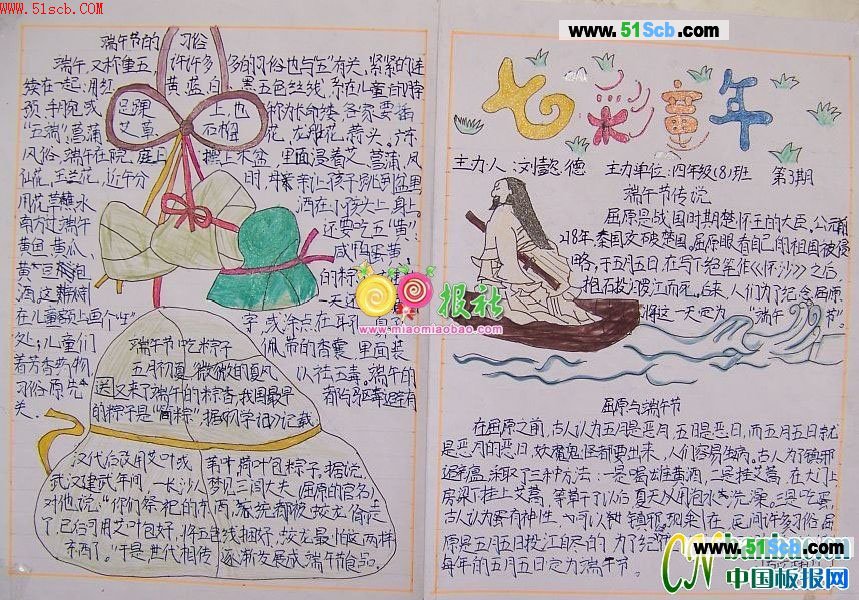 www.51scb.com
端午节的习俗
端午,又称重五,许许多多的习俗也与"五"有关,紧紧的连
续在一起:用红黄蓝白黑五色丝线系在儿童的脖
手腕或足踝上,也称为长命缕,各家要插
"五端"菖蒲艾草石榴花,
风俗,端午在院庭上摆上木盆,里面浸着艾菖蒲,凤
仙花,玉兰花,近午分时,母亲让孩子跳到盆里
用花草蘸水洒在小孩头上,身上。
南方过端午还要吃五"黄":
黄鱼,黄瓜,咸鸭蛋黄
黄豆
酒,这
在儿童额上画个"王"字,或涂点在耳
处;儿童们佩带的香囊,里面装
着芳香药物以祛五毒。端午的
习俗原先都与驱毒避瘟有
关。
端午节吃粽子
五月初夏,微微的夏风,
送又来了端午的粽香,我国最早
的粽子是"筒粽",据《风学记》记载
汉代后改用艾叶或苇叶荷叶包粽子。据说,
武汉建武年间,一长沙人梦见三闾大夫(屈原的官名)
对他说:"你们祭祀的东西,都被蛟龙偷走
了,已后可用艾叶包好,将五色线捆好,蛟龙最怕这两样
东西了。"于是世代相传,逐渐发展成端午节食品。
www.51Scb.com
七彩童年
主力人:刘懿德 主力单位:四年级(8)班 第3期
端午节传说
屈原是战国时期楚怀王的大臣。公元前
278年,秦国攻破楚国。屈原眼看自己的祖国被侵
略,于五月五日,在写下绝笔作《怀沙》之后,
抱石投汨罗江而死。后来,人们为了纪念屈原
将这一天定为"端午节"。
报社
www.miaomiaobao.com
屈原与端午节
在屈原之前,古人认为五月是恶月,五日是恶日,而五月五日就
是恶月的恶日,妖魔鬼怪都要出来,人们容易生病。古人为了镇邪
避瘟,采取了三种方法:一是喝雄黄酒,二是挂艾蒿,在大门上
房梁下挂上艾蒿,等草干了以后,夏天用包水洗澡。三是吃蛋
古人认为蛋有神性,可以镇邪。现在,民间许多习俗,屈
原是五月五日投江自尽的,为了纪
每年的五月五日定为端午节。
www.51Scb.com
中国板报网